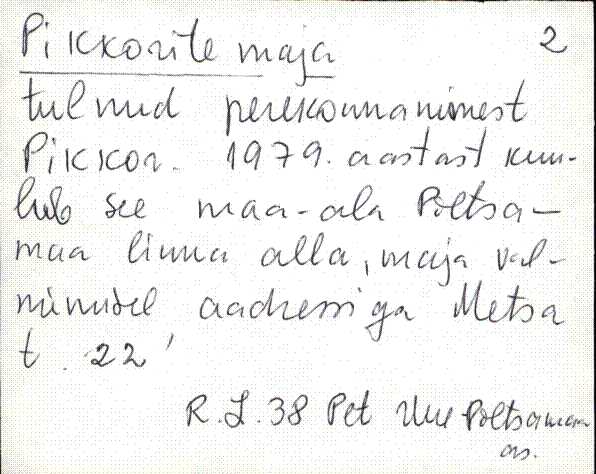 Pikkorite maja 2
tulnud perekonnanimest
Pikkor. 1979. aastast kuu-
lub see maa-ala Põltsa-
maa linna alla, maja val-
minudel aadressiga Metsa
t. 22
R. L. 38 Pet Uue Põltsamaa
as.